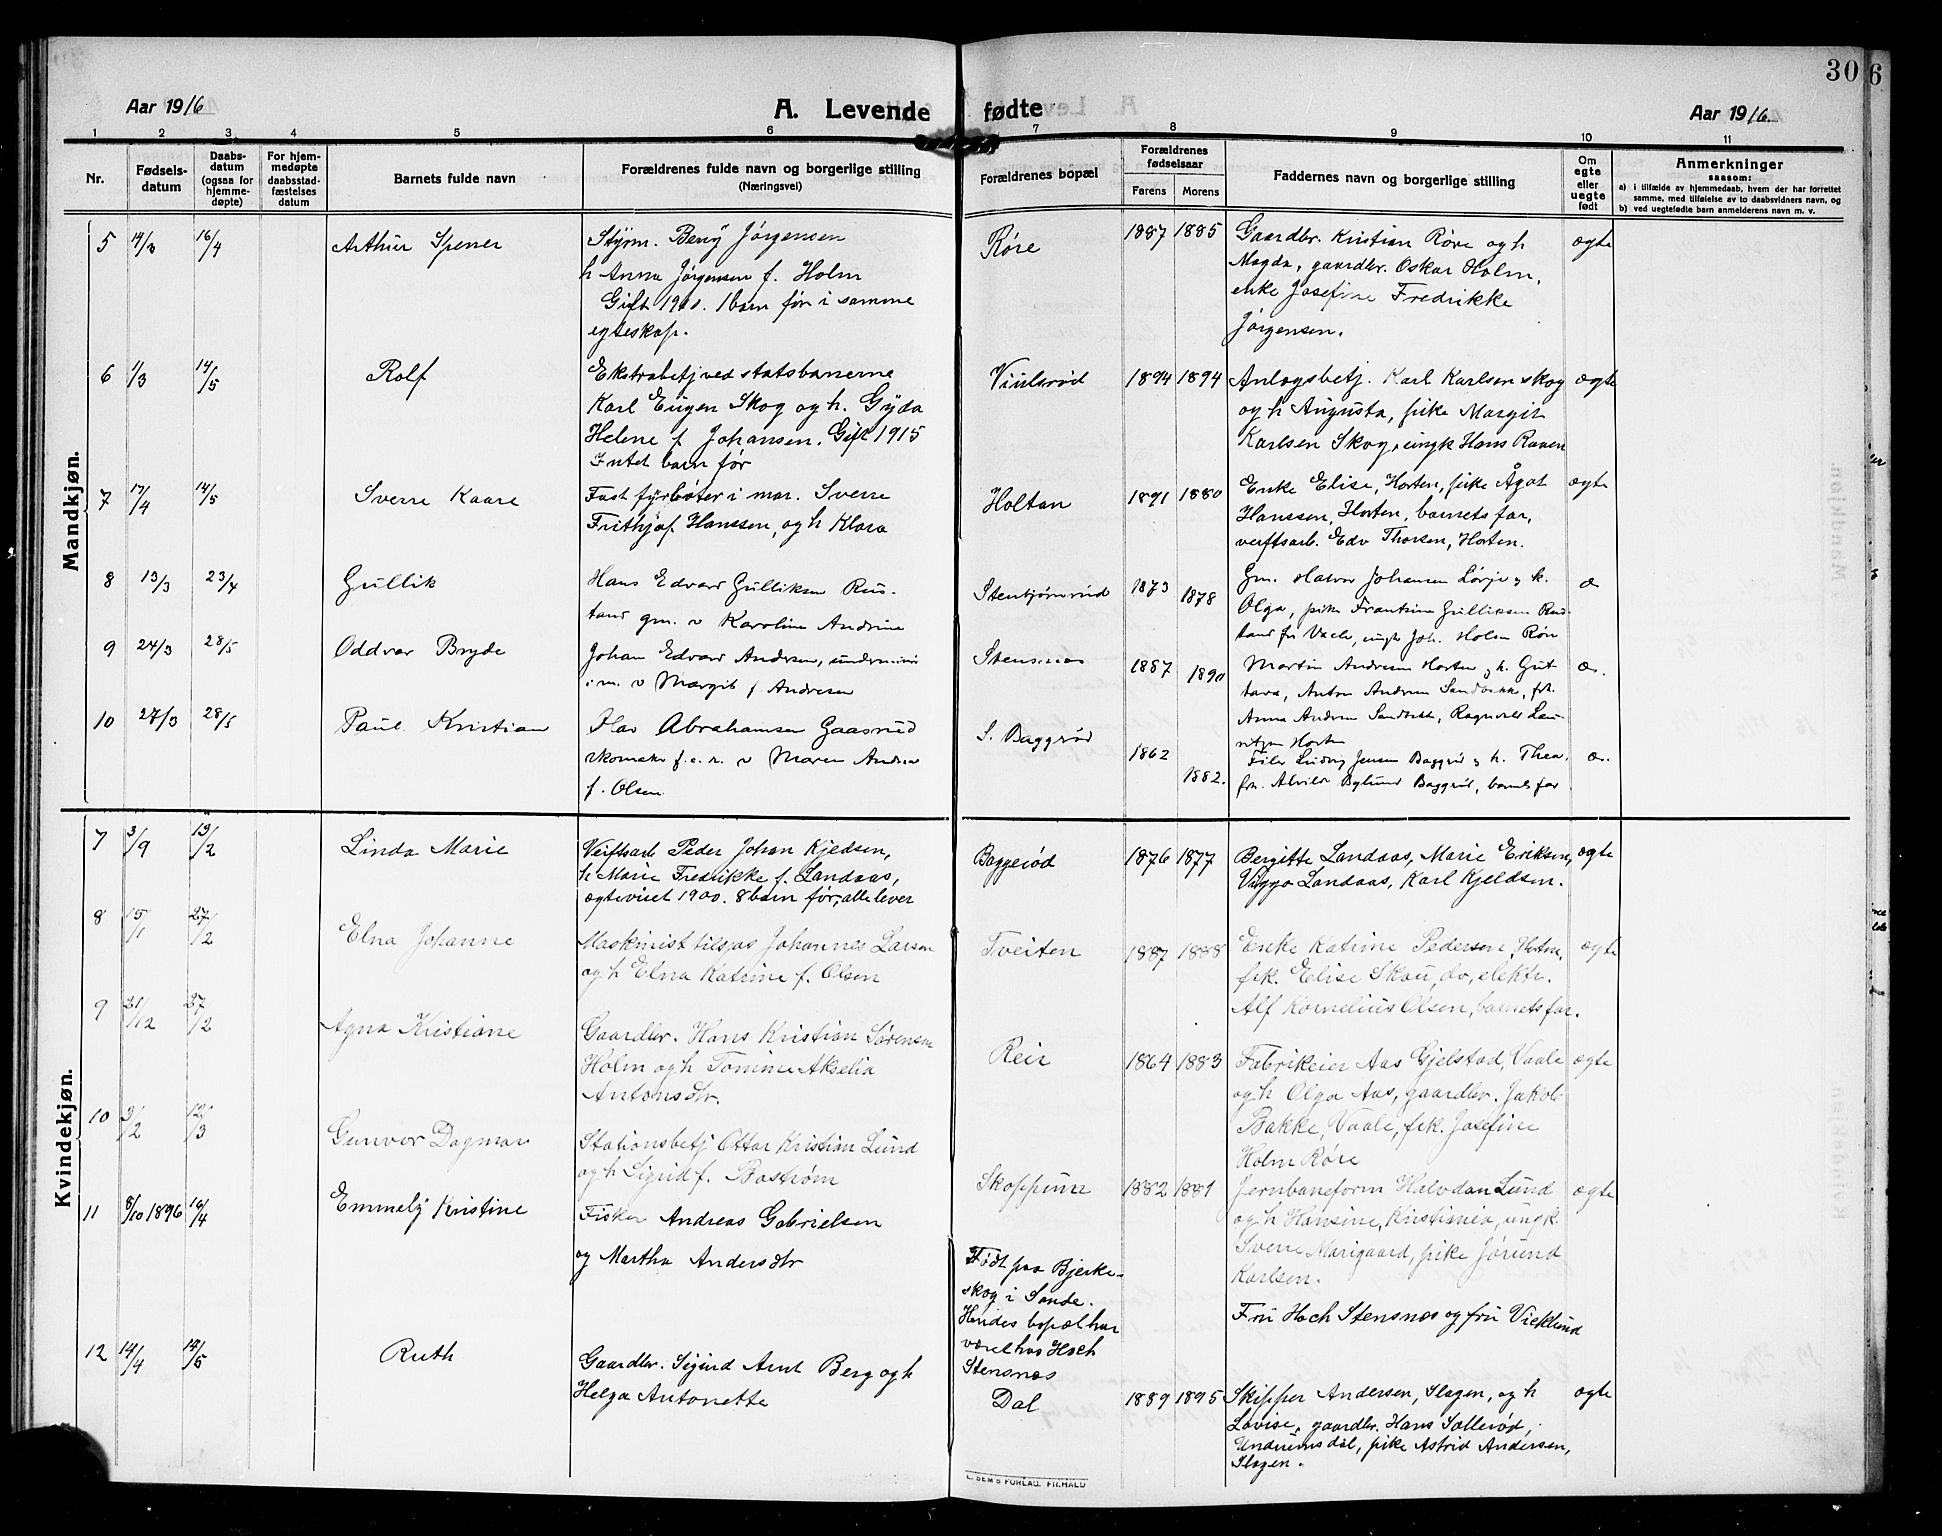 30
6
Aar 1916
A. Levende fødte
Aar 1916
1 2 3 4 5 6 7 8 9 10 11
Nr.
Fødsels-
datum
Daabs-
datum
(ogsaa for
hjemme-
døpte)
For hjem-
medøpte
daabsstad-
fæstelses
datum
Barnets fulde navn
Forældrenes fulde navn og borgerlige stilling
(Næringsvei)
Forældrenes bopæl
Forældrenes
fødselsaar
Farens Morens
Faddernes navn og borgerlige stilling
Om
egte
eller
uegte
født
Anmerkninger
saasom:
a) i tilfælde av hjemmedaab, hvem der har forrettet
samme, med tilføielse av to daabsvidners navn, og
b) ved uegtefødte barn anmelderens navn m. v.
Mandkjøn.
5 14/3 16/4 Arthur Spener
Styrm. Berg Jørgensen
h Anna Jørgensen f. Holm
Gift 1910. 1 barn før i samme
egteskap.
Røre 1887 1885
Gaardbr. Kristian Røre og h
Magda, gaardbr. Oskar Holm,
enke Josefine Fredrikke
Jørgensen.
ægte
6 1/3 14/5 Rolf
Ekstrabetj ved statsbanerne
Karl Eugen Skog og h. Gyda
Helene f Johansen. Gift 1915
Intet barn før
Viulsrød 1894 1894
Anlogsbetj. Karl Karlsen skog
og h Augusta, pike Margit
Karlsen Skog, ungk Hans Raven
ægte
7 17/4 14/5 Sverre Kaare
Fast fyrbøter i mar. Sverre
Frithjof Hanssen, og h Klara
Holtan 1891 1880
Enke Elise, Horten, pike Ågot
Hanssen, Horten, barnets far,
verftsarb. Edv Thorsen, Horten.
ægte
8 13/3 23/4 Gullik
Hans Edvard Gulliksen Rus-
tand gm. v Karoline Andrine
Stenbjørnrød 1873 1878
Gm. Halvor Johansen Lørje og h.
Olga, pike Frantine Gulliksen Rus-
tand fri Vaale, ungk Joh. Holm Røre
æ
9 24/3 28/5 Oddvar Bryde
Johan Edvard Andersen,
i m. v Margit f Andresen
Stensnæs 1887 1890
Martin Andresen Horten og h. Gus
tava, Anton Andresen Sandbekk, frk.
Anna Andresen Sandbekk, Ragnvald Lau-
ritzen Horten
æ.
10 27/3 28/5 Paul Kristian
Olav Abrahamsen Gaasrud
skomaker f.e.r. v Maren Andrea
f. Olsen
S. Baggrød 1862 1882.
Ludvig Jensen Baggrød og h. Thea,
frk. Alvilde Bylund Baggrød, barnets far
æ.
Kvindekjøn.
7 3/9 13/2 Linda Marie
Verftsarb Peder Johan Kjeldsen,
h Marie Fredrikke f. Landaas,
ægteviet 1900. 8 barn før, alle lever
Baggerød 1876 1877
Bergitte Landaas, Marie Eriksen,
Viggo Landaas, Karl Kjeldsen.
ægte
8 15/1 27/2 Elna Johanne
Maskinist tilsjøs Johannes Larsen
og h Elna Katrine f. Olsen
Tveiten 1887 1888
Enke Katrine Pedersen, Horten,
frk. Elise Skau, do, elektr.
Alf Kornelius Olsen, barnets far.
ægte
9 21/12 27/2 Agna Kristiane
Gaardbr. Hans Kristian Sørensen
Holm og h Tomine Akselia
Antonsdtr.
Reir 1864 1883
Fabrikeier Aas Gjelstad, Vaale
og h Olga Aas, gaardbr. Jakob
Bakke, Vaale, frk. Josefine
Holm Røre
ægte
10 3/2 12/3 Gunvor Dagmar
Stationsbetj Ottar Kristian Lund
og h Sigrid f. Bostrøm
Skoppum 1882 1881
Jernbaneform Halvdan Lund
og h Hansine, Kristiania, ungk.
Sverre Marigaard, pike Jørund
Karlsen.
ægte
11 8/10 1896 16/4 Emmely Kristine
Fisker Andreas Gabrielsen
og Martha Andersdtr
Født paa Bjerke-
skog i Sande.
Hendes bopæl har
været hos Hoch
Stensnæs
Fru Hoch Stensnæs og fru Vicklund
12 14/4 14/5 Ruth
Gaardbr. Sigurd Arnt Berg og h
Helga Antonette
Dal 1889 1895
Skipper Andersen, Slagen, og h
Lovise, gaardbr. Hans Sollerød,
Undrumsdal, pike Astrid Andersen,
Slagen.
ægte
E. SEM'S FORLAG. FR.HALD